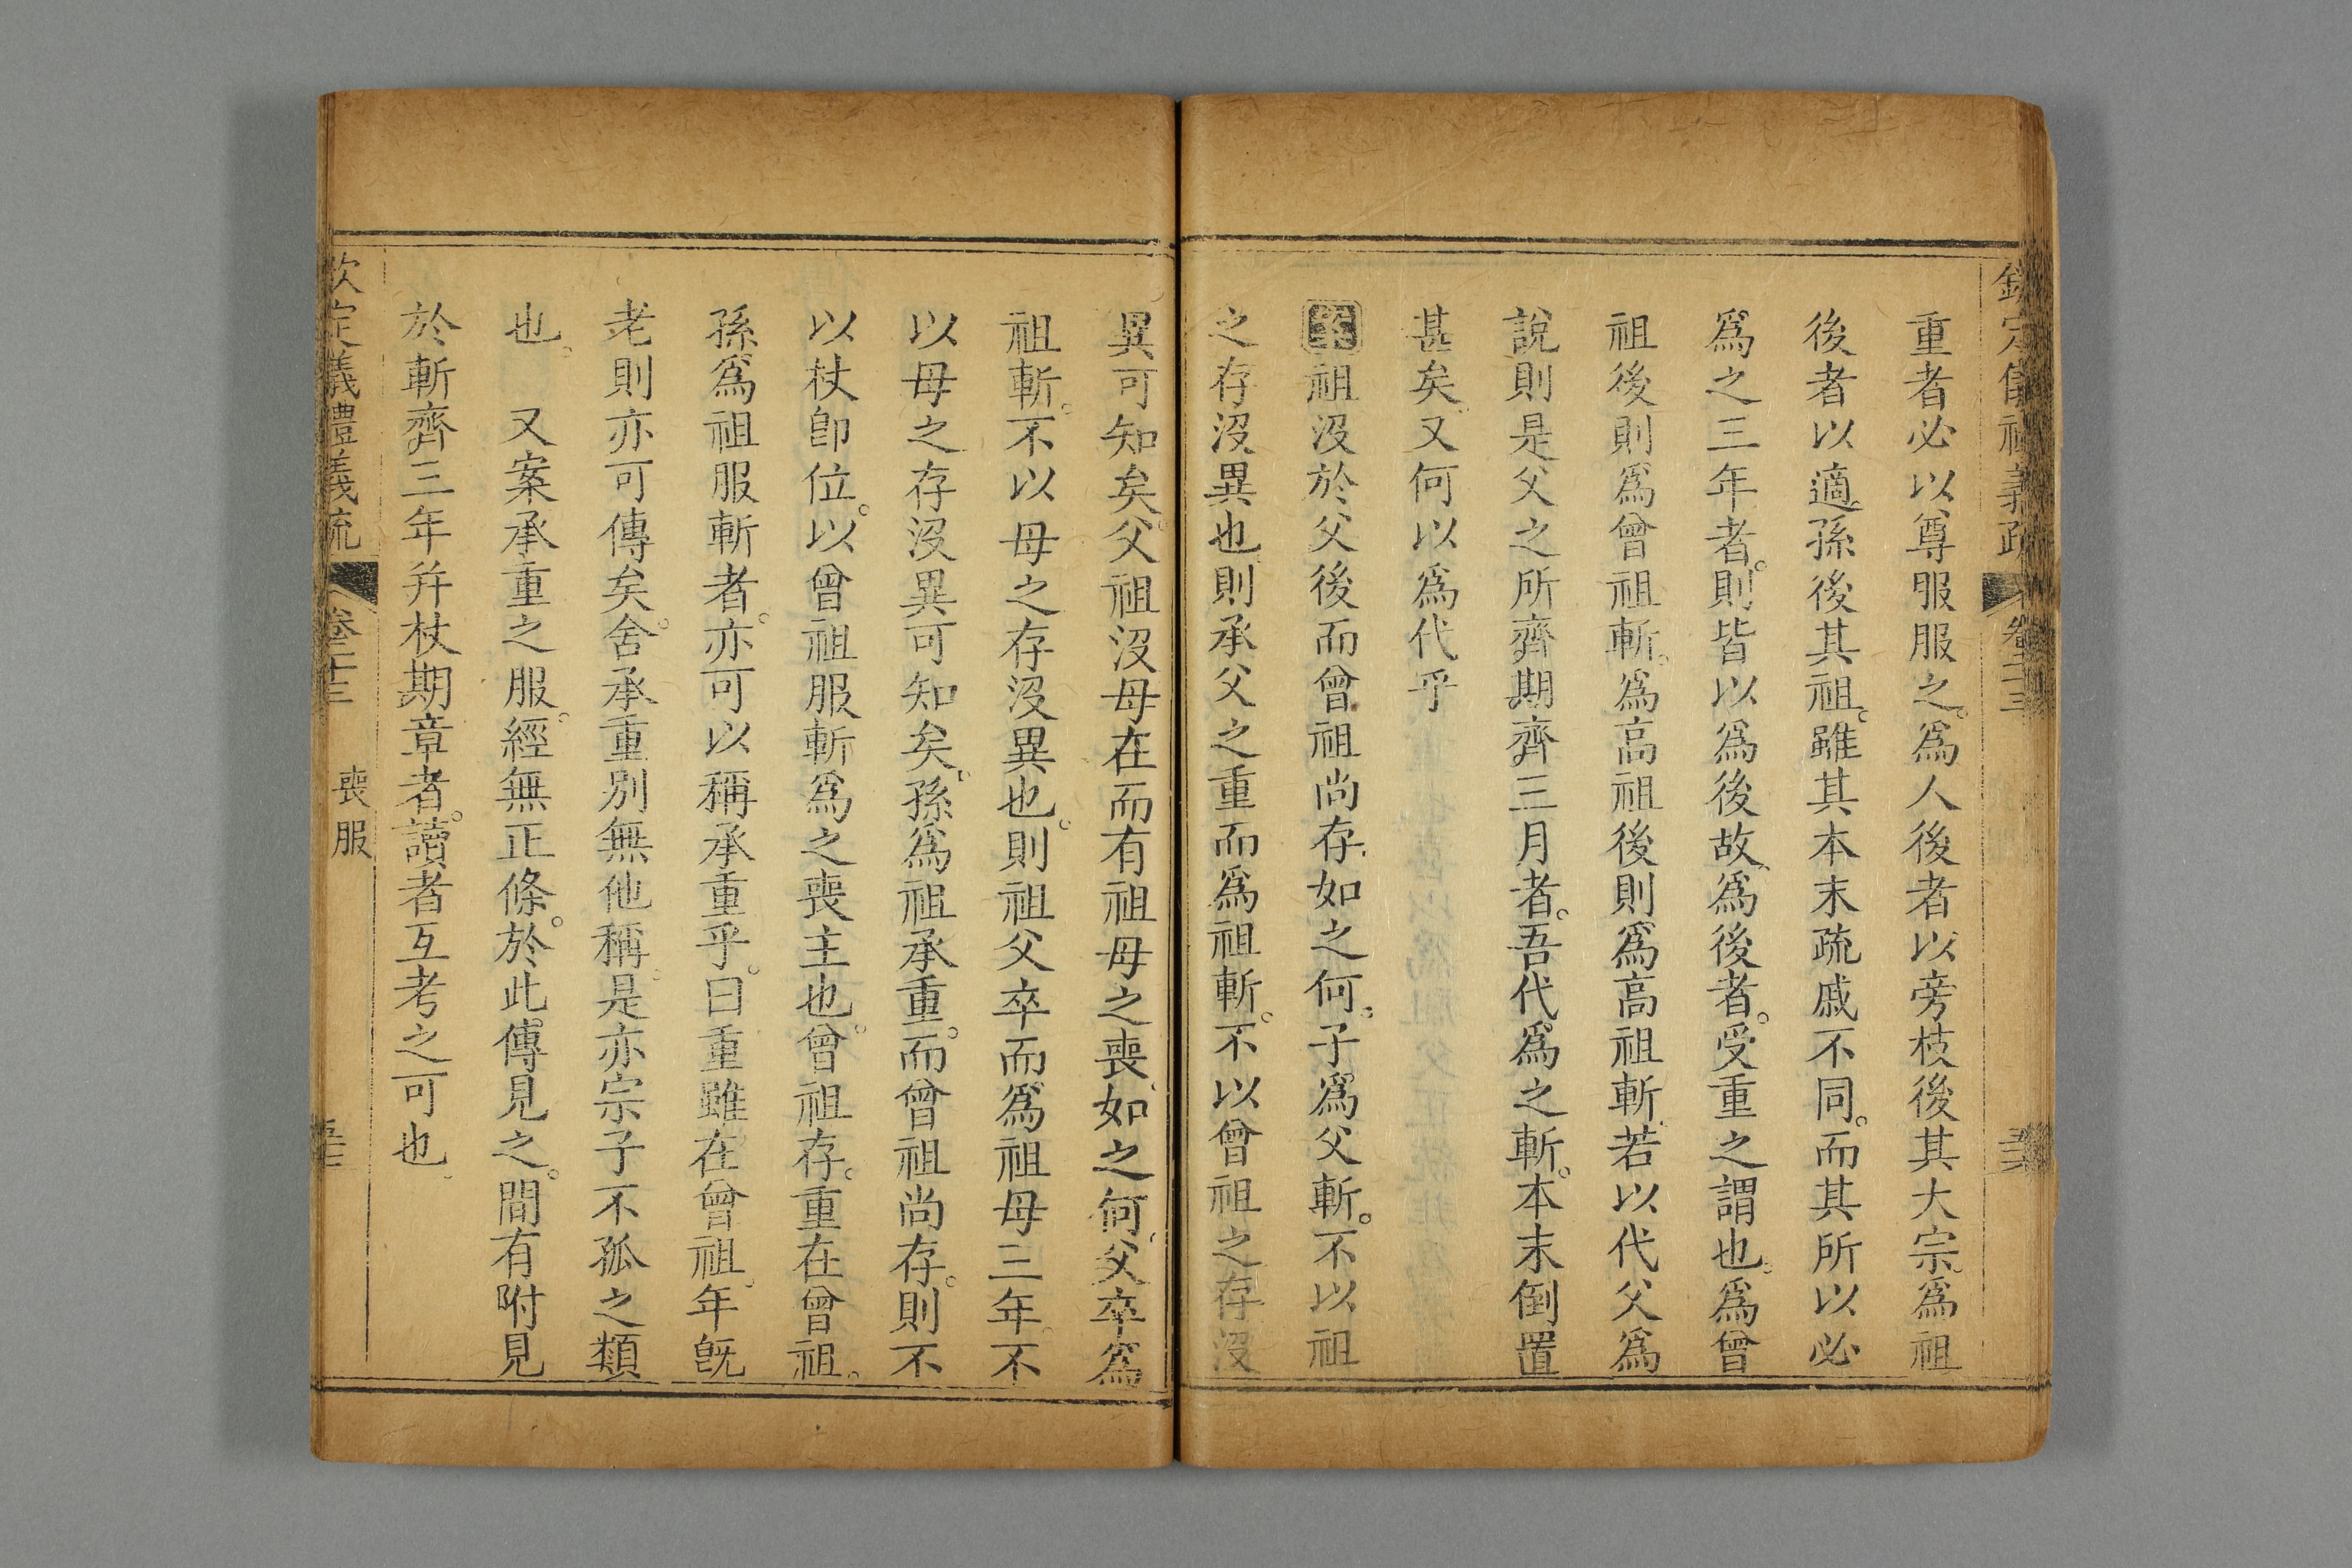 欽定儀禮義疏 卷二十三
重者必以尊服服之。爲人後者以旁枝後其大宗。爲祖
後者以適孫後其祖。雖其本末疏戚不同。而其所以必
爲之三年者。則皆以爲後故、爲後者。受重之謂也。爲曾
祖後則爲曾祖斬。爲高祖後則爲高祖斬。若以代父爲
說則是父之所齊期齊三月者。吾代爲之斬。本末倒置
甚矣。又何以爲代乎
案祖沒於父後而曾祖尚存。如之何。子爲父斬。不以祖
之存沒異也則承父之重而爲祖斬。不以曾祖之存沒
異可知矣。父祖沒母在而有祖母之喪、如之何、父卒爲
祖斬。不以母之存沒異也。則祖父卒而爲祖母三年。不
以母之存沒異可知矣、孫爲祖承重。而曾祖尚存。則不
以杖卽位。以曾祖服斬爲之喪主也。曾祖存。重在曾祖。
孫爲祖服斬者。亦可以稱承重乎。曰重雖在曾祖。年旣
老則亦可傳矣。舍承重別無他稱。是亦宗子不孤之類
也。 又案承重之服。經無正條。於此傳見之。間有附見
於斬齊三年幷杖期章者。讀者互考之可也。
欽定儀禮義疏 卷二十三 喪服